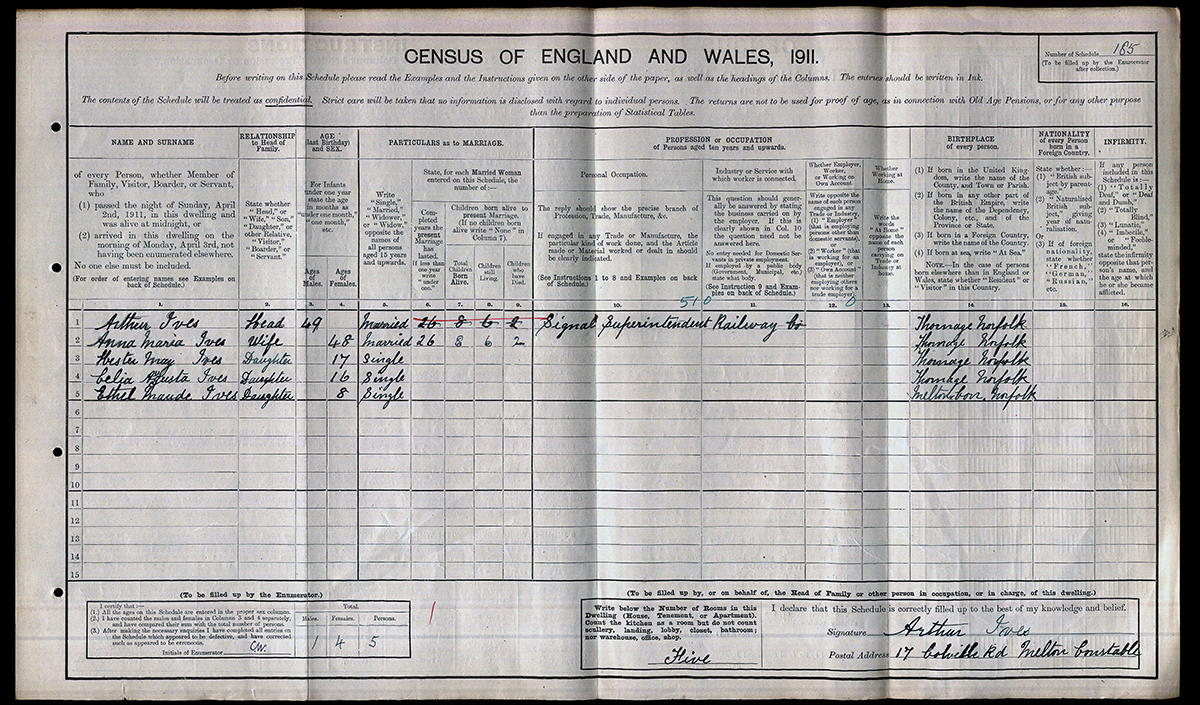 CENSUS OF ENGLAND AND WALES, 1911.
Number of Schedule 185
(To be filled up by the Enumerator
after collection.)
Before writing on this Schedule please read the Examples and the Instructions given on the other side of the paper, as well as the headings of the Columns. The entries should be written in Ink.
The contents of the Schedule will be treated as confidential. Strict care will be taken that no information is disclosed with regard to individual persons. The returns are not to be used for proof of age, as in connection with Old Age Pensions, or for any other purpose
than the preparation of Statistical Tables.
NAME AND SURNAME
of every Person, whether Member of
Family, Visitor, Boarder, or Servant,
who
(1) passed the night of Sunday, April
2nd, 1911, in this dwelling and
was alive at midnight, or
(2) arrived in this dwelling on the
morning of Monday, April 3rd, not
having been enumerated elsewhere.
No one else must be included.
(For order of entering names see Examples on
back of Schedule.)
RELATIONSHIP
to Head of
Family.
State whether
"Head," or
"Wife," "Son,"
"Daughter," or
other Relative,
"Visitor,"
"Boarder," or
"Servant."
AGE
(last Birthday)
and SEX.
For Infants
under one year
state the age
in months as
"under one month,"
"one month,"
etc.
Ages
of
Males.
Ages
of
Females.
PARTICULARS as to MARRIAGE.
Write
"Single,"
"Married,"
"Widower,"
or "Widow,"
opposite the
names of
all persons
aged 15 years
and upwards.
State, for each Married Woman
entered on this Schedule, the
number of:—
Completed
years the
present
Marriage
has
lasted.
If less than
one year
write
"under
one."
Children born alive to
present Marriage.
(If no children born
alive write "None" in
Column 7).
Total
Children
Born
Alive.
Children
still
Living.
Children
who
have
Died.
PROFESSION or OCCUPATION
of Persons aged ten years and upwards.
Personal Occupation.
The reply should show the precise branch of
Profession, Trade, Manufacture, &c.
If engaged in any Trade or Manufacture, the
particular kind of work done, and the Article
made or Material worked or dealt in should
be clearly indicated.
(See Instructions 1 to 8 and Examples on back
of Schedule.)
Industry or Service with
which worker is connected.
This question should generally
be answered by stating
the business carried on
by the employer. If this is
clearly shown in Col. 10
the question need not be
answered here.
No entry needed for Domestic Servants
in private employment.
If employed by a public body
(Government, Municipal, etc)
state what body.
(See Instruction 9 and Examples
on back of Schedule.)
Whether Employer,
Worker,
or Working on
Own Account.
Write opposite the
name of each person
engaged in any
Trade or Industry,
(1) "Employer"
(that is employing
persons other than
domestic servants),
or
(2) "Worker" (that
is working for an
employer), or
(3) "Own Account"
(that is neither
employing others
nor working for a
trade employer).
Whether
Working at
Home.
Write the
words
"At Home"
opposite the
name of each
person
carrying on
Trade or
Industry
at
Home.
BIRTHPLACE
of every person.
(1) If born in the United Kingdom,
write the name of the
County, and Town or Parish.
(2) If born in any other part of
the British Empire, write
the name of the Dependency,
Colony, etc., and of the
Province or State.
(3) If born in a Foreign Country,
write the name of the Country.
(4) If born at sea, write "At Sea."
NOTE.—In the case of persons
born elsewhere than in England or
Wales, state whether "Resident" or
"Visitor" in this Country.
NATIONALITY
of every Person
born in a
Foreign Country.
State whether:—
(1) "British subject
by parentage."
(2) "Naturalised
British subject,"
giving
year of naturalisation.
Or
(3) If of foreign
nationality,
state whether
"French,"
"German,"
"Russian,"
etc.
INFIRMITY.
If any person
included in this
Schedule is:—
(1) "Totally
Deaf," or "Deaf
and Dumb,"
(2) "Totally
Blind,"
(3) "Lunatic,"
(4) "Imbecile,"
or "Feeble-minded,"
state the infirmity
opposite that person's
name, and
the age at which
he or she became
afflicted.
1. 2. 3. 4. 5. 6. 7. 8. 9. 10. 11. 12. 13. 14. 15. 16.
510 0
1 Arthur Ives Head 49 Married 26 8 6 2 Signal Superintendent Railway Co Thornage Norfolk
2 Anna Maria Ives Wife 48 Married 26 8 6 2 Thornage Norfolk
3 Hester May Ives Daughter 17 Single Thornage Norfolk
4 Celia Augusta Ives Daughter 16 Single Thornage Norfolk
5 Ethel Maude Ives Daughter 8 Single Melton Con. Norfolk
6
7
8
9
10
11
12
13
14
15
(To be filled up by the Enumerator.)
I certify that:—
(1.) All the ages on this Schedule are entered in the proper sex columns.
(2.) I have counted the males and females in Columns 3 and 4 separately,
and have compared their sum with the total number of persons.
(3.) After making the necessary enquiries I have completed all entries on
the Schedule which appeared to be defective, and have corrected
such as appeared to be erroneous.
Initials of Enumerator
Total.
Males. Females. Persons.
1 4 5
(To be filled up by, or on behalf of, the Head of Family or other person in occupation, or in charge, of this dwelling.)
Write below the Number of Rooms in this
Dwelling (House, Tenement, or Apartment).
Count the kitchen as a room but do not count
scullery, landing, lobby, closet, bathroom;
nor warehouse, office, shop.
Five
I declare that this Schedule is correctly filled up to the best of my knowledge and belief.
Signature Arthur Ives
Postal Address 17 Colville Rd Melton Constable